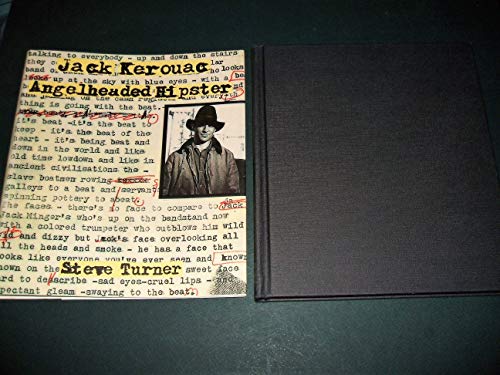 talking to everybody - up and down the stairs
Jack Kerouac
they
band o
lar
looks
up at the sky with blue eyes - with a be
Angelheaded Hipster
thing is going with the beat.
it's beat - it's the beat to
keep - it's the beat of the
heart - it's being beat and
down in the world and like
old time lowdown and like in
ancient civilisations the -
slave boatmen rowing
galleys to a beat and servant
spinning pottery to a beat.
The faces - there's no face to compare to Jack
Jack Minger's who's up on the bandstand now
with a colored trumpeter who outblows him wild
and dizzy but Jack's face overlooking all
the heads and smoke - he has a face that
looks like everyone you've ever seen and known
known on the
sweet face
Steve Turner
hard to describe - sad eyes - cruel lips - and
expectant gleam - swaying to the beat.